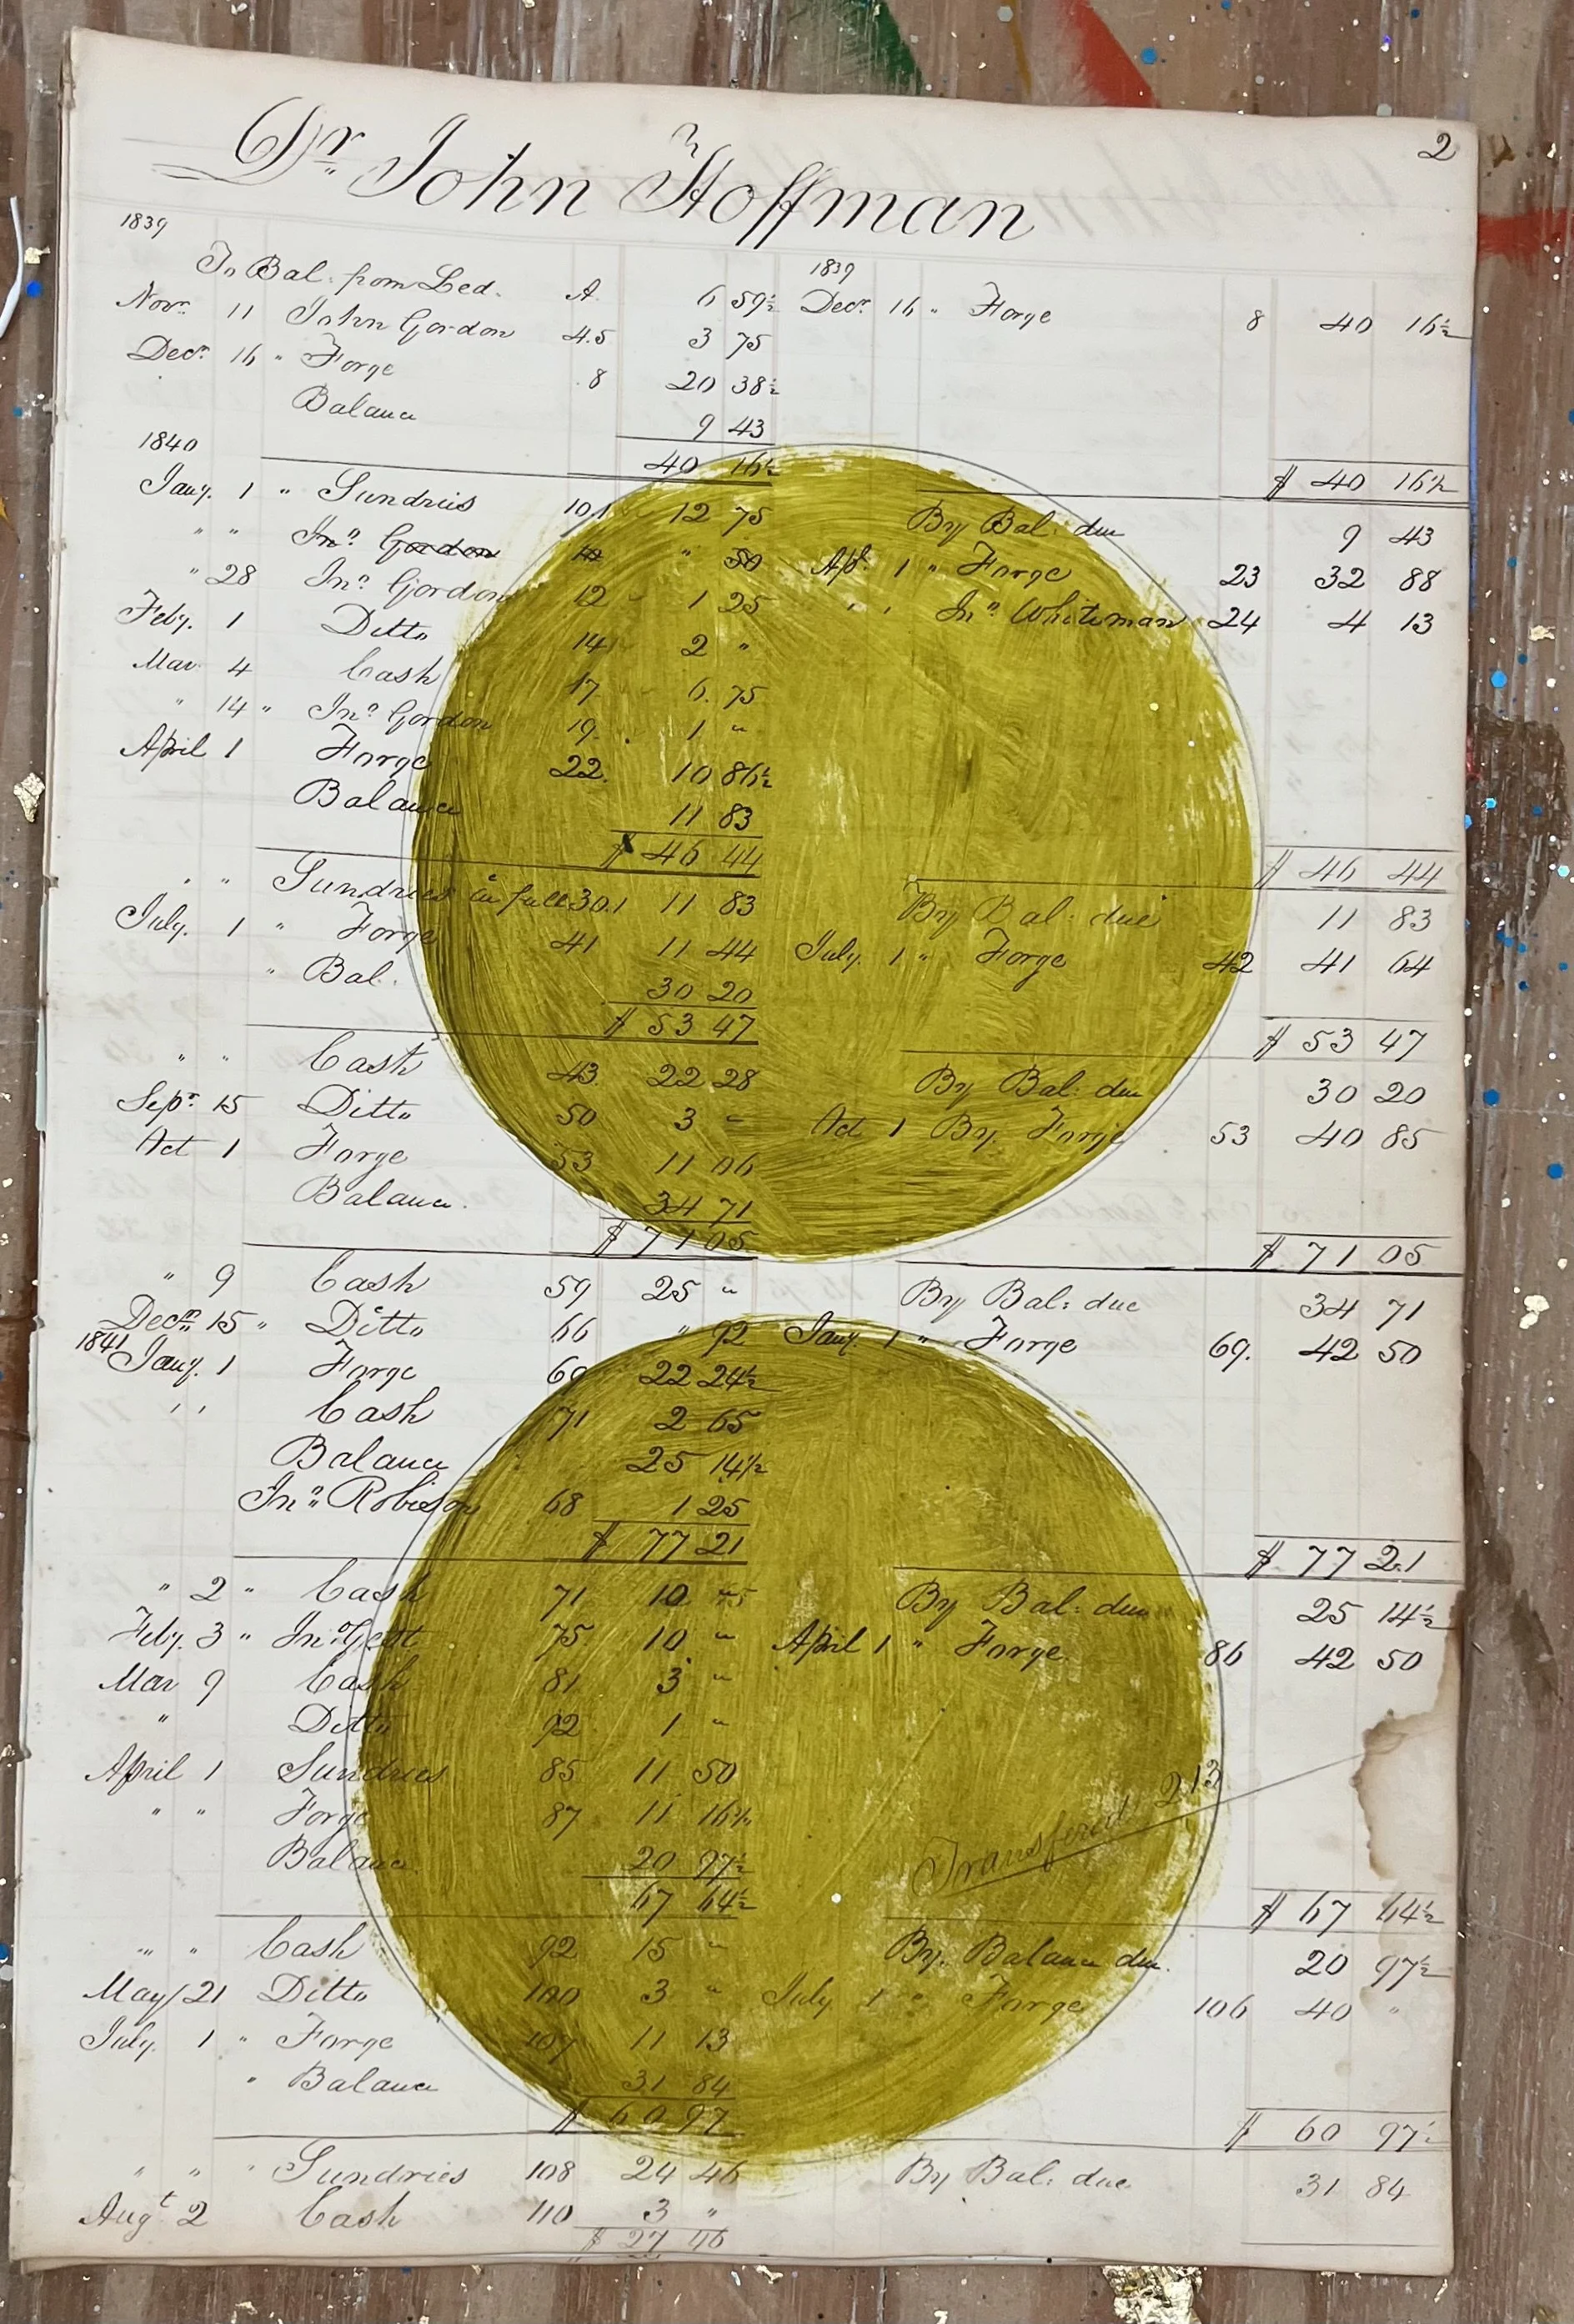 2
Dr John Hoffman
1839
To Bal. from Led. A 6 59½ 1839
Novr 11 John Gordon 4.5 3 75 Decr 16 " Forge 8 40 16½
Decr 16 " Forge 8 20 38½
Balance 9 43
1840 40 16½ $ 40 16½
Jany. 1 " Sundries 101 12 75 By Bal: due 9 43
" " Jno Gordon " 50 Apl. 1 " Forge 23 32 88
" 28 Jno Gordon 12 1 25 " " Jno Whiteman 24 4 13
Feby. 1 Ditto 14 2 "
Mar 4 Cash 17 6.75
" 14 " Jno Gordon 19 1 "
April 1 Forge 22. 10 86½
Balance 11 83
$ 46 44 $ 46 44
" " Sundries in full 30.1 11 83 By Bal: due 11 83
July. 1 " Forge 41 11 44 July. 1 " Forge 42 41 64
" Bal. 30 20
$ 53 47 $ 53 47
" " Cash 43 22 28 By Bal: due 30 20
Sepr 15 Ditto 50 3 " Oct 1 By. Forge 53 40 85
Oct 1 Forge 53 11 06
Balance. 34 71
$ 71 05 $ 71 05
" 9 Cash 59 25 " By Bal: due 34 71
Decr 15 " Ditto 66 " 92 Jany. 1 " Forge 69. 42 50
1841 Jany. 1 Forge 69 22 24½
" " Cash 71 2 65
Balance 25 14½
Jno Robison 68 1 25
$ 77 21 $ 77 21
" 2 " Cash 71 10 By Bal: due 25 14½
Feby. 3 " Jno 75 10 " April 1 " Forge 86 42 50
Mar 9 Cash 81 3 "
" Ditto 92 1 "
April 1 Sundries 85 11 50
" " Forge 87 11 16½
Transfered 213
Balance. 20 97½
67 64½ $ 67 64½
" " Cash 92 15 " By. Balance due. 20 97½
May 21 Ditto 100 3 " July 1 " Forge 106 40 "
July. 1 " Forge 107 11 13
" Balance 31 84
$ 60 97 $ 60 97½
" " " Sundries 108 24 46 By Bal: due 31 84
Augt 2 Cash 110 3 "
$ 27 46